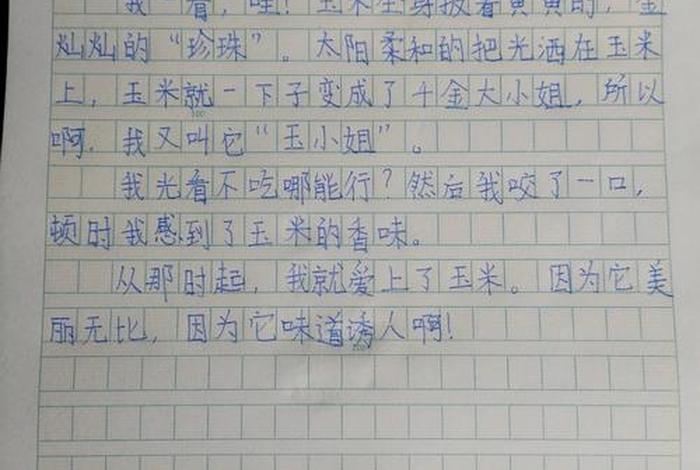 我一看，哇！玉米全身披着黄黄的，金
灿灿的“珍珠”。太阳柔和的把光洒在玉米
上，玉米就一下子变成了千金大小姐，所以
啊，我又叫它“玉小姐”。
我光看不吃哪能行？然后我咬了一口，
顿时我感到了玉米的香味。
从那时起，我就爱上了玉米。因为它美
丽无比，因为它味道诱人啊！